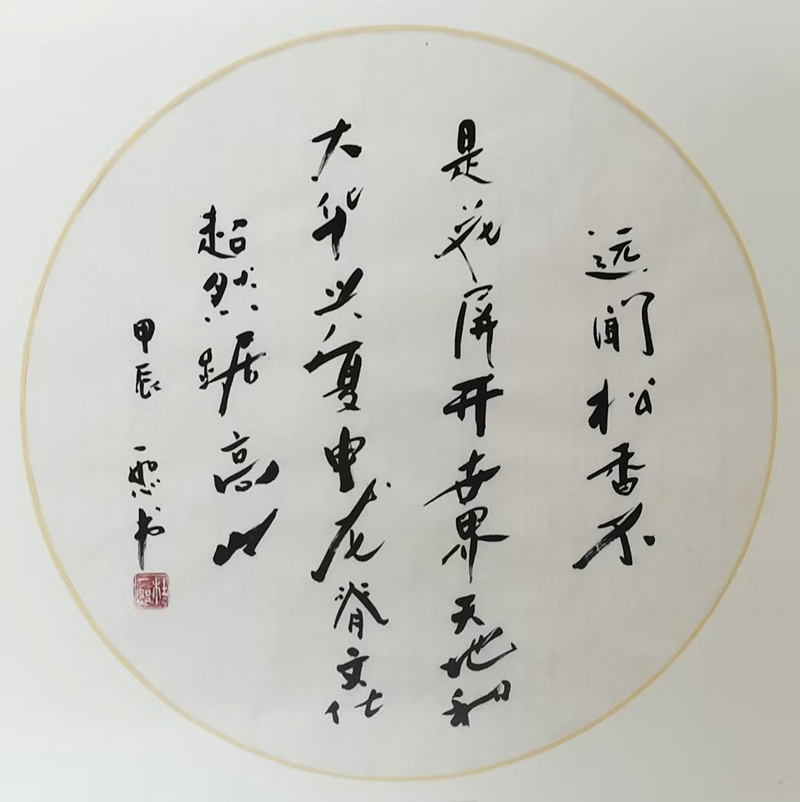 远闻松香不
是花屏开世界天地和
大华兴复申龙脊文化
超然踞高山
甲辰 书